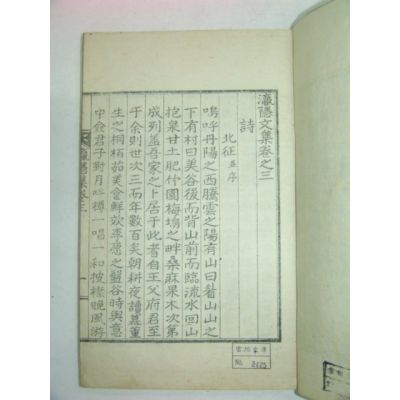 瀛隱文集卷之三
詩
北征 並序
嗚呼丹陽之西騰雲之陽有山曰着山山之
下有村曰美谷後而背山前而臨流水回山
抱泉甘土肥什園梅塢之畔桑麻果木次第
成列盖吾家之卜居于此者自王父府君至
于余則世次三而年數百矣朝耕夜讀養重
生之桐栢茹美會鮮
之盤谷時與意
中僉君子對月
樽一唱一和披襟晩風游
隱集卷三
一